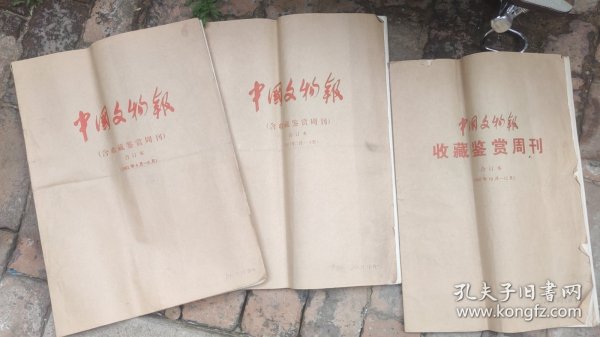 中国文物报
(含收藏鉴赏周刊)
合订本
中国文物报
(含收藏鉴赏周刊)
合订本
中国文物报
收藏鉴赏周刊
合订本
孔夫子旧书网
kongfz.com